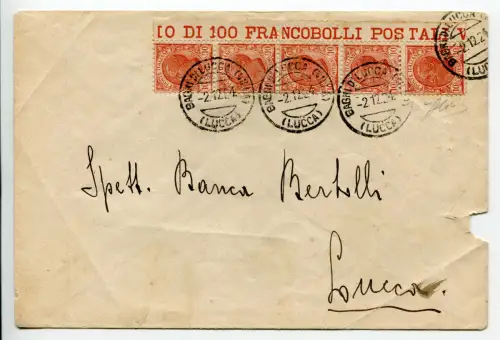 IO DI 100 FRANCOBOLLI POSTALI
BAGNI DI LUCCA
-2.12.24
(LUCCA)
BAGNI DI LUCCA
-2.12.24
(LUCCA)
BAGNI DI LUCCA
-2.12.24
(LUCCA)
BAGNI DI LUCCA
-2.12.24
(LUCCA)
Spett. Banca Bertolli
Lucca.